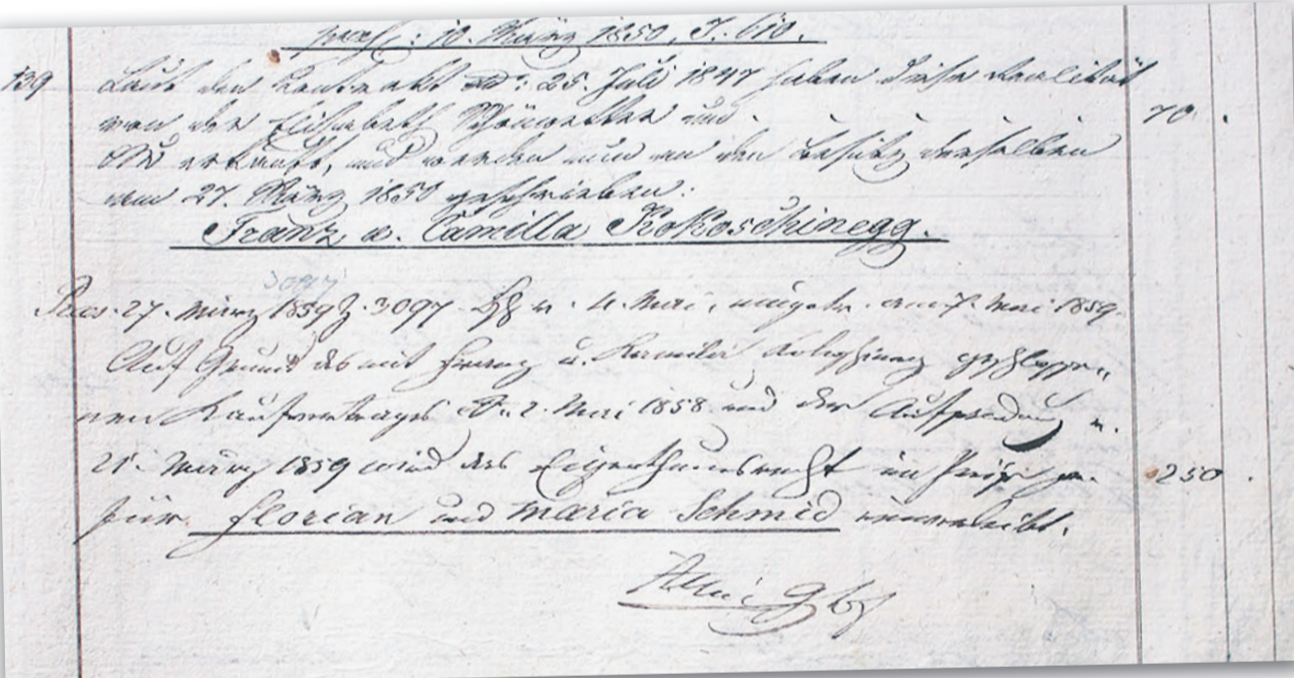 praes: 10. März 1850, Z. 610.
139 Laut den Contrakt dd: 25. Juli 1847 haben diese Realität
von der Elisabeth Schönwetter um 70 .
CM erkauft, und werden nun an den Besitz derselben
am 27. März 1850 geschrieben:
Franz u. Camilla Kokoschinegg.
3097
Praes. 27. März 1859 Z. 3097 v. 4. Mai, am 7. Mai 1859.
Auf Grund des mit Franz u. Kamila geschlosse„
nen Kaufvertrages dd. 2. Mai 1858 und der Aufsandung v.
21. März 1859 wird das Eigenthumsrecht im Preise pr. 250 .
für Florian und Maria Schmid einverleibt.